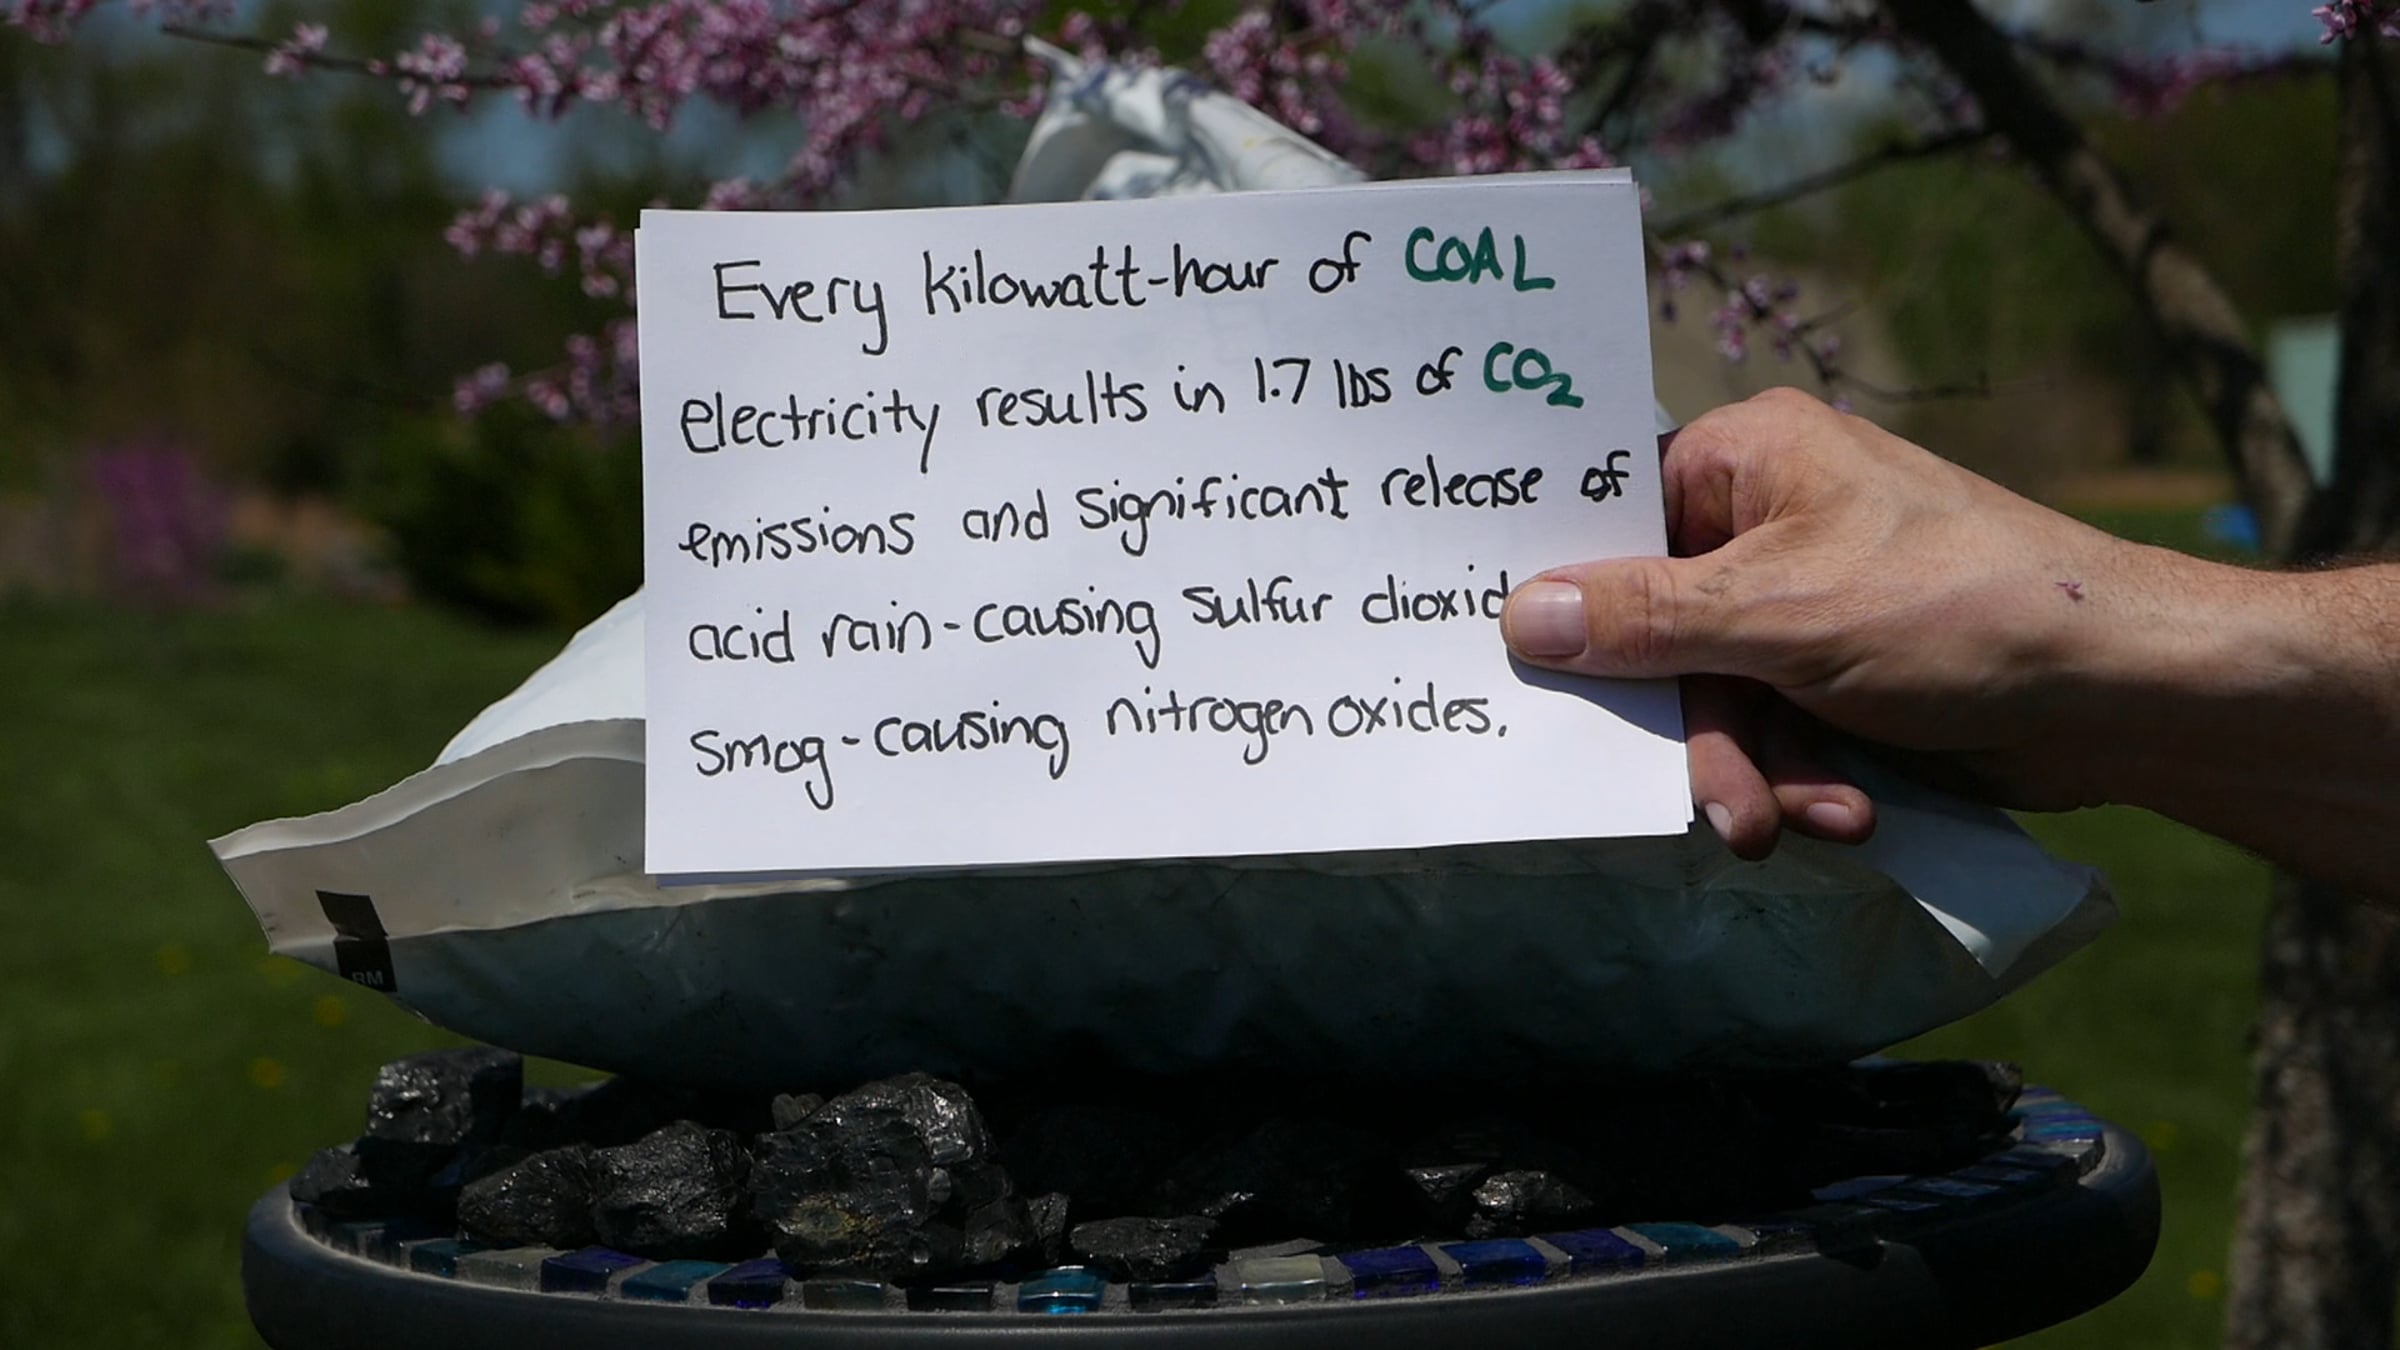 Every kilowatt-hour of COAL
electricity results in 1.7 lbs of CO₂
emissions and significant release of
acid rain-causing sulfur dioxid
smog-causing nitrogen oxides.
RM